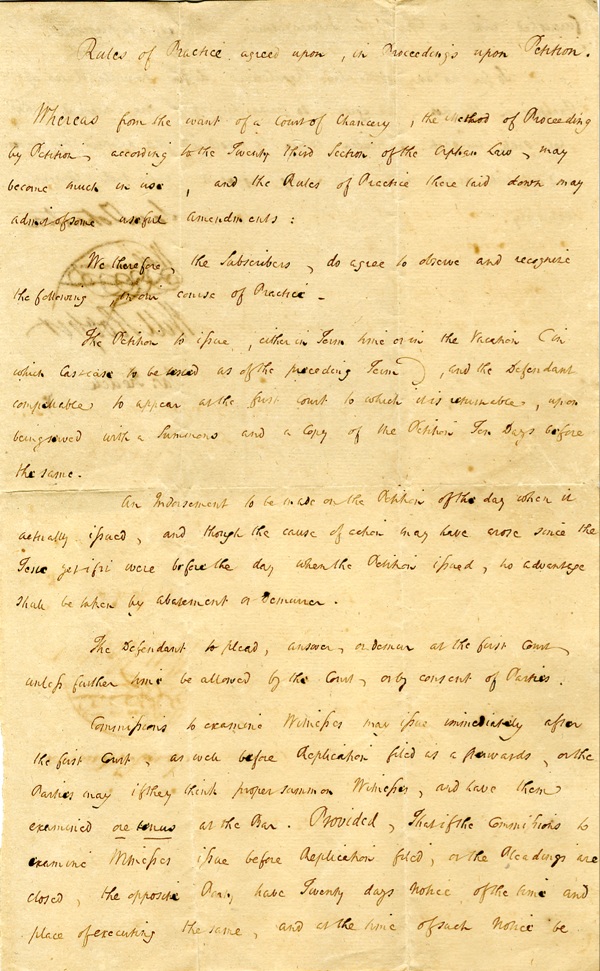 Rules of Practice agreed upon, in Proceedings upon Petition.
Whereas from the want of a Court of Chancery, the Method of Proceeding
by Petition, according to the Twenty Third Section of the Orphan Law, may
become much in use, and the Rules of Practice there laid down may
admit of some useful amendments:
We therefore, the Subscribers, do agree to observe and recognize
the following in our course of Practice.
The Petition to issue, either in Term time or in the Vacation (in
which last case to be tested as of the preceding Term), and the Defendant
compellable to appear at the first Court to which it is returnable, upon
being served with a Summons and a Copy of the Petition Ten Days before
the same.
An Indorsement to be made on the Petition of the day when it
actually issued, and though the cause of action may have arose since the
Teste yet if it were before the day when the Petition issued, no advantage
shall be taken by abatement or Demurrer.
The Defendant to plead, answer, or demur at the first Court,
unless further time be allowed by the Court, or by consent of Parties.
Commissions to examine Witnesses may issue immediately after
the first Court, as well before Replication filed as afterwards, or the
Parties may if they think proper summon Witnesses, and have them
examined ore tenus at the Bar. Provided, That if the Commissions to
examine Witnesses issue before Replication filed, or the Pleadings are
closed, the opposite Party have Twenty days Notice of the time and
place of executing the same, and at the time of such Notice be